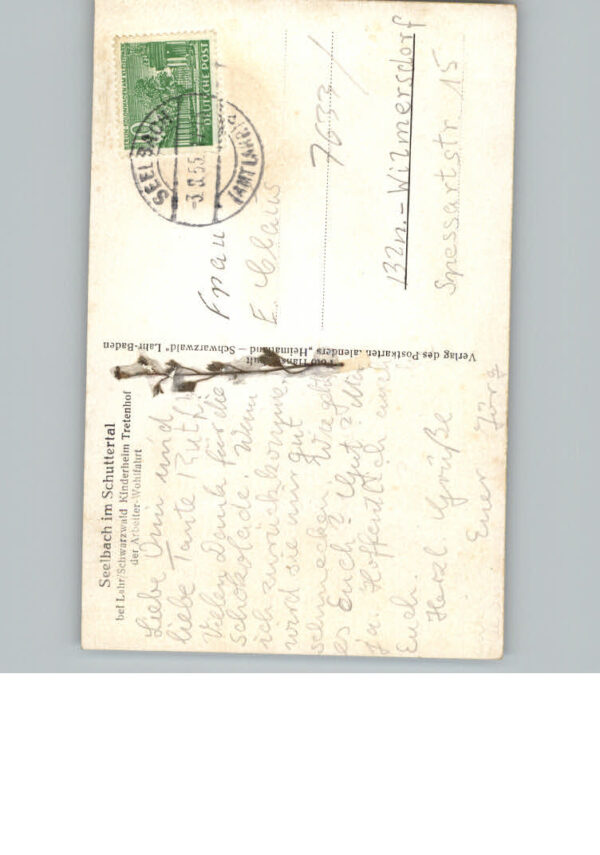 Seelbach im Schuttertal
bei Lahr/Schwarzwald Kinderheim Tretenhof
der Arbeiter-Wohlfahrt
Liebe Omi und
liebe Tante Ruth,
Vielen Dank für die
Schokolade. Wenn
ich zurückkomme
wird sie mir gut
schmecken. Wie geht
es Euch? Gut? Mir
ja. Hoffentlich auch
Euch.
Herzl. Grüße
Euer Jörg
Verlag des Postkartenkalenders „Heimatland – Schwarzwald" Lahr-Baden
Foto Hans
DEUTSCHE POST
SEELBACH
(AMT LAHR)
Frau
E. Claus
7633/
132n.-Wilmersdorf
Spessartstr. 15